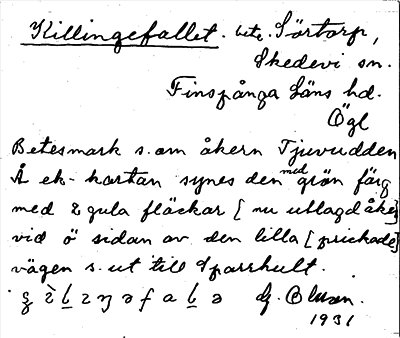 Killingefallet. bete. Sörtorp,
Skedevi sn.
Finspånga Läns hd.
Ögl
Betesmark s.om åkern Tjuvudden
Å ek-kartan synes den med grön färg
med 2 gula fläckar [nu utlagd åker]
vid ö sidan av den lilla [prickade]
vägen s. ut till Sparrhult.
1931